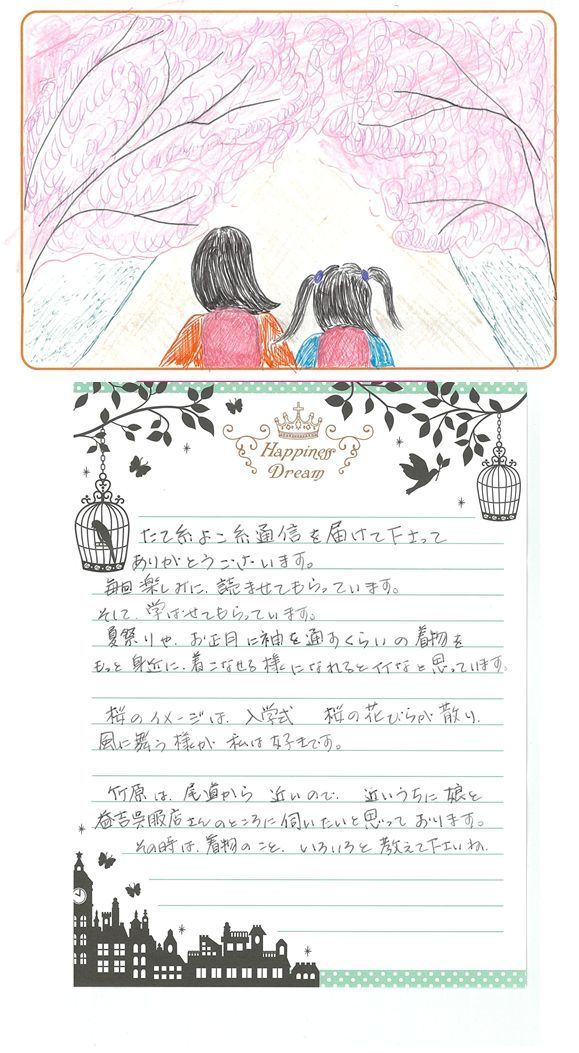 Happiness
Dream
たて糸よこ糸通信を届けて下さって
ありがとうございます。
毎回楽しみに、読ませてもらっています。
そして、学ばせてもらっています。
夏祭りや、お正月に袖を通すくらいの着物を
もっと身近に、着こなせる様になれるとイイなと思っています。
桜のイメージは、入学式　桜の花びらが散り、
風に舞う様が私は好きです。
竹原は、尾道から近いので、近いうちに娘と
益吉呉服店さんのところに伺いたいと思っております。
その時は、着物のこと、いろいろと教えて下さいね。